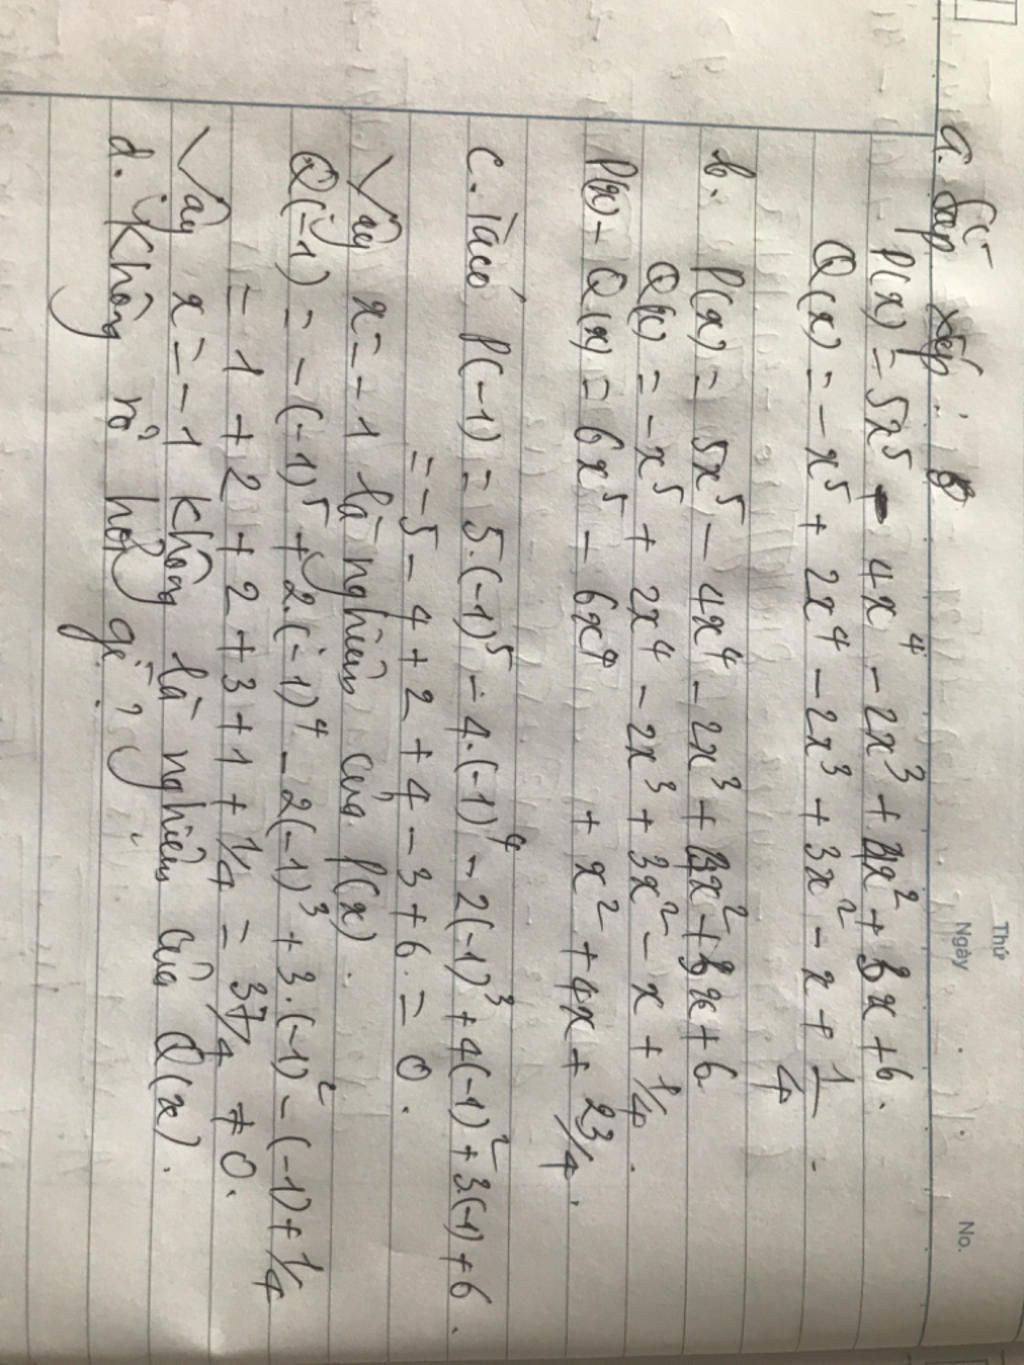 Thứ
Ngày
No.
a. Sắp xếp:
P(x) = 5x⁵ - 4x⁴ - 2x³ + 4x² + 3x + 6.
Q(x) = -x⁵ + 2x⁴ - 2x³ + 3x² - x + 1/4.
b. P(x) = 5x⁵ - 4x⁴ - 2x³ + 4x² + 3x + 6
Q(x) = -x⁵ + 2x⁴ - 2x³ + 3x² - x + 1/4.
P(x) - Q(x) = 6x⁵ - 6x⁴ + x² + 4x + 23/4.
c. Ta có P(-1) = 5.(-1)⁵ - 4.(-1)⁴ - 2(-1)³ + 4(-1)² + 3(-1) + 6.
= -5 - 4 + 2 + 4 - 3 + 6 = 0.
Vậy x = -1 là nghiệm của P(x).
Q(-1) = -(-1)⁵ + 2.(-1)⁴ - 2(-1)³ + 3.(-1)² - (-1) + 1/4
= 1 + 2 + 2 + 3 + 1 + 1/4 = 37/4 ≠ 0.
Vậy x = -1 không là nghiệm của Q(x).
d. (Không rõ hỏi gì?)